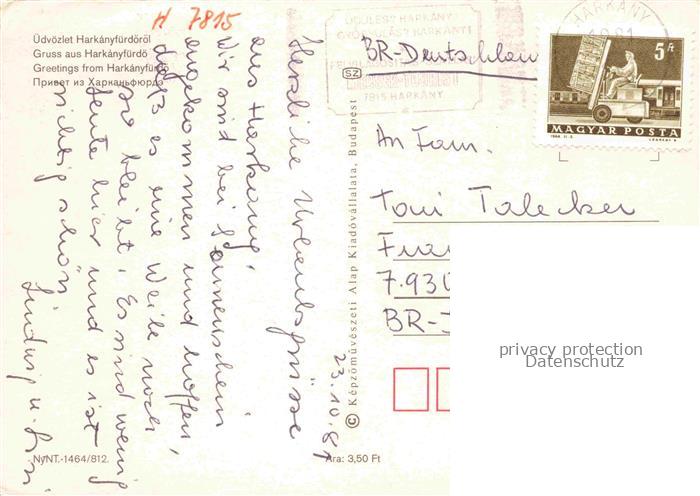 H 7815
Üdvözlet Harkányfürdőről
Gruss aus Harkányfürdő
Greetings from Harkányfürdő
Привет из Харканьфюрдő
ÜDÜLÉS? HARKÁNY
GYÓGYULÁS? HARKÁNY!
7815 HARKÁNY
HARKÁNY
5 Ft
MAGYAR POSTA
BR-Deutschlan
SZ
Herzliche Urlaubsgrüsse
aus Harkany.
Wir sind bei Sonnenschein
angekommen und hoffen,
dass es eine Weile noch
so bleibt. Es sind wenig
Leute hier und es ist
richtig schön
Ludwig u.
23.10.81
© Képzőművészeti Alap Kiadóvállalata, Budapest
An Fam.
Toni Talecker
7930
BR-
privacy protection
Datenschutz
NyNT.-1464/812.
Ára: 3,50 Ft